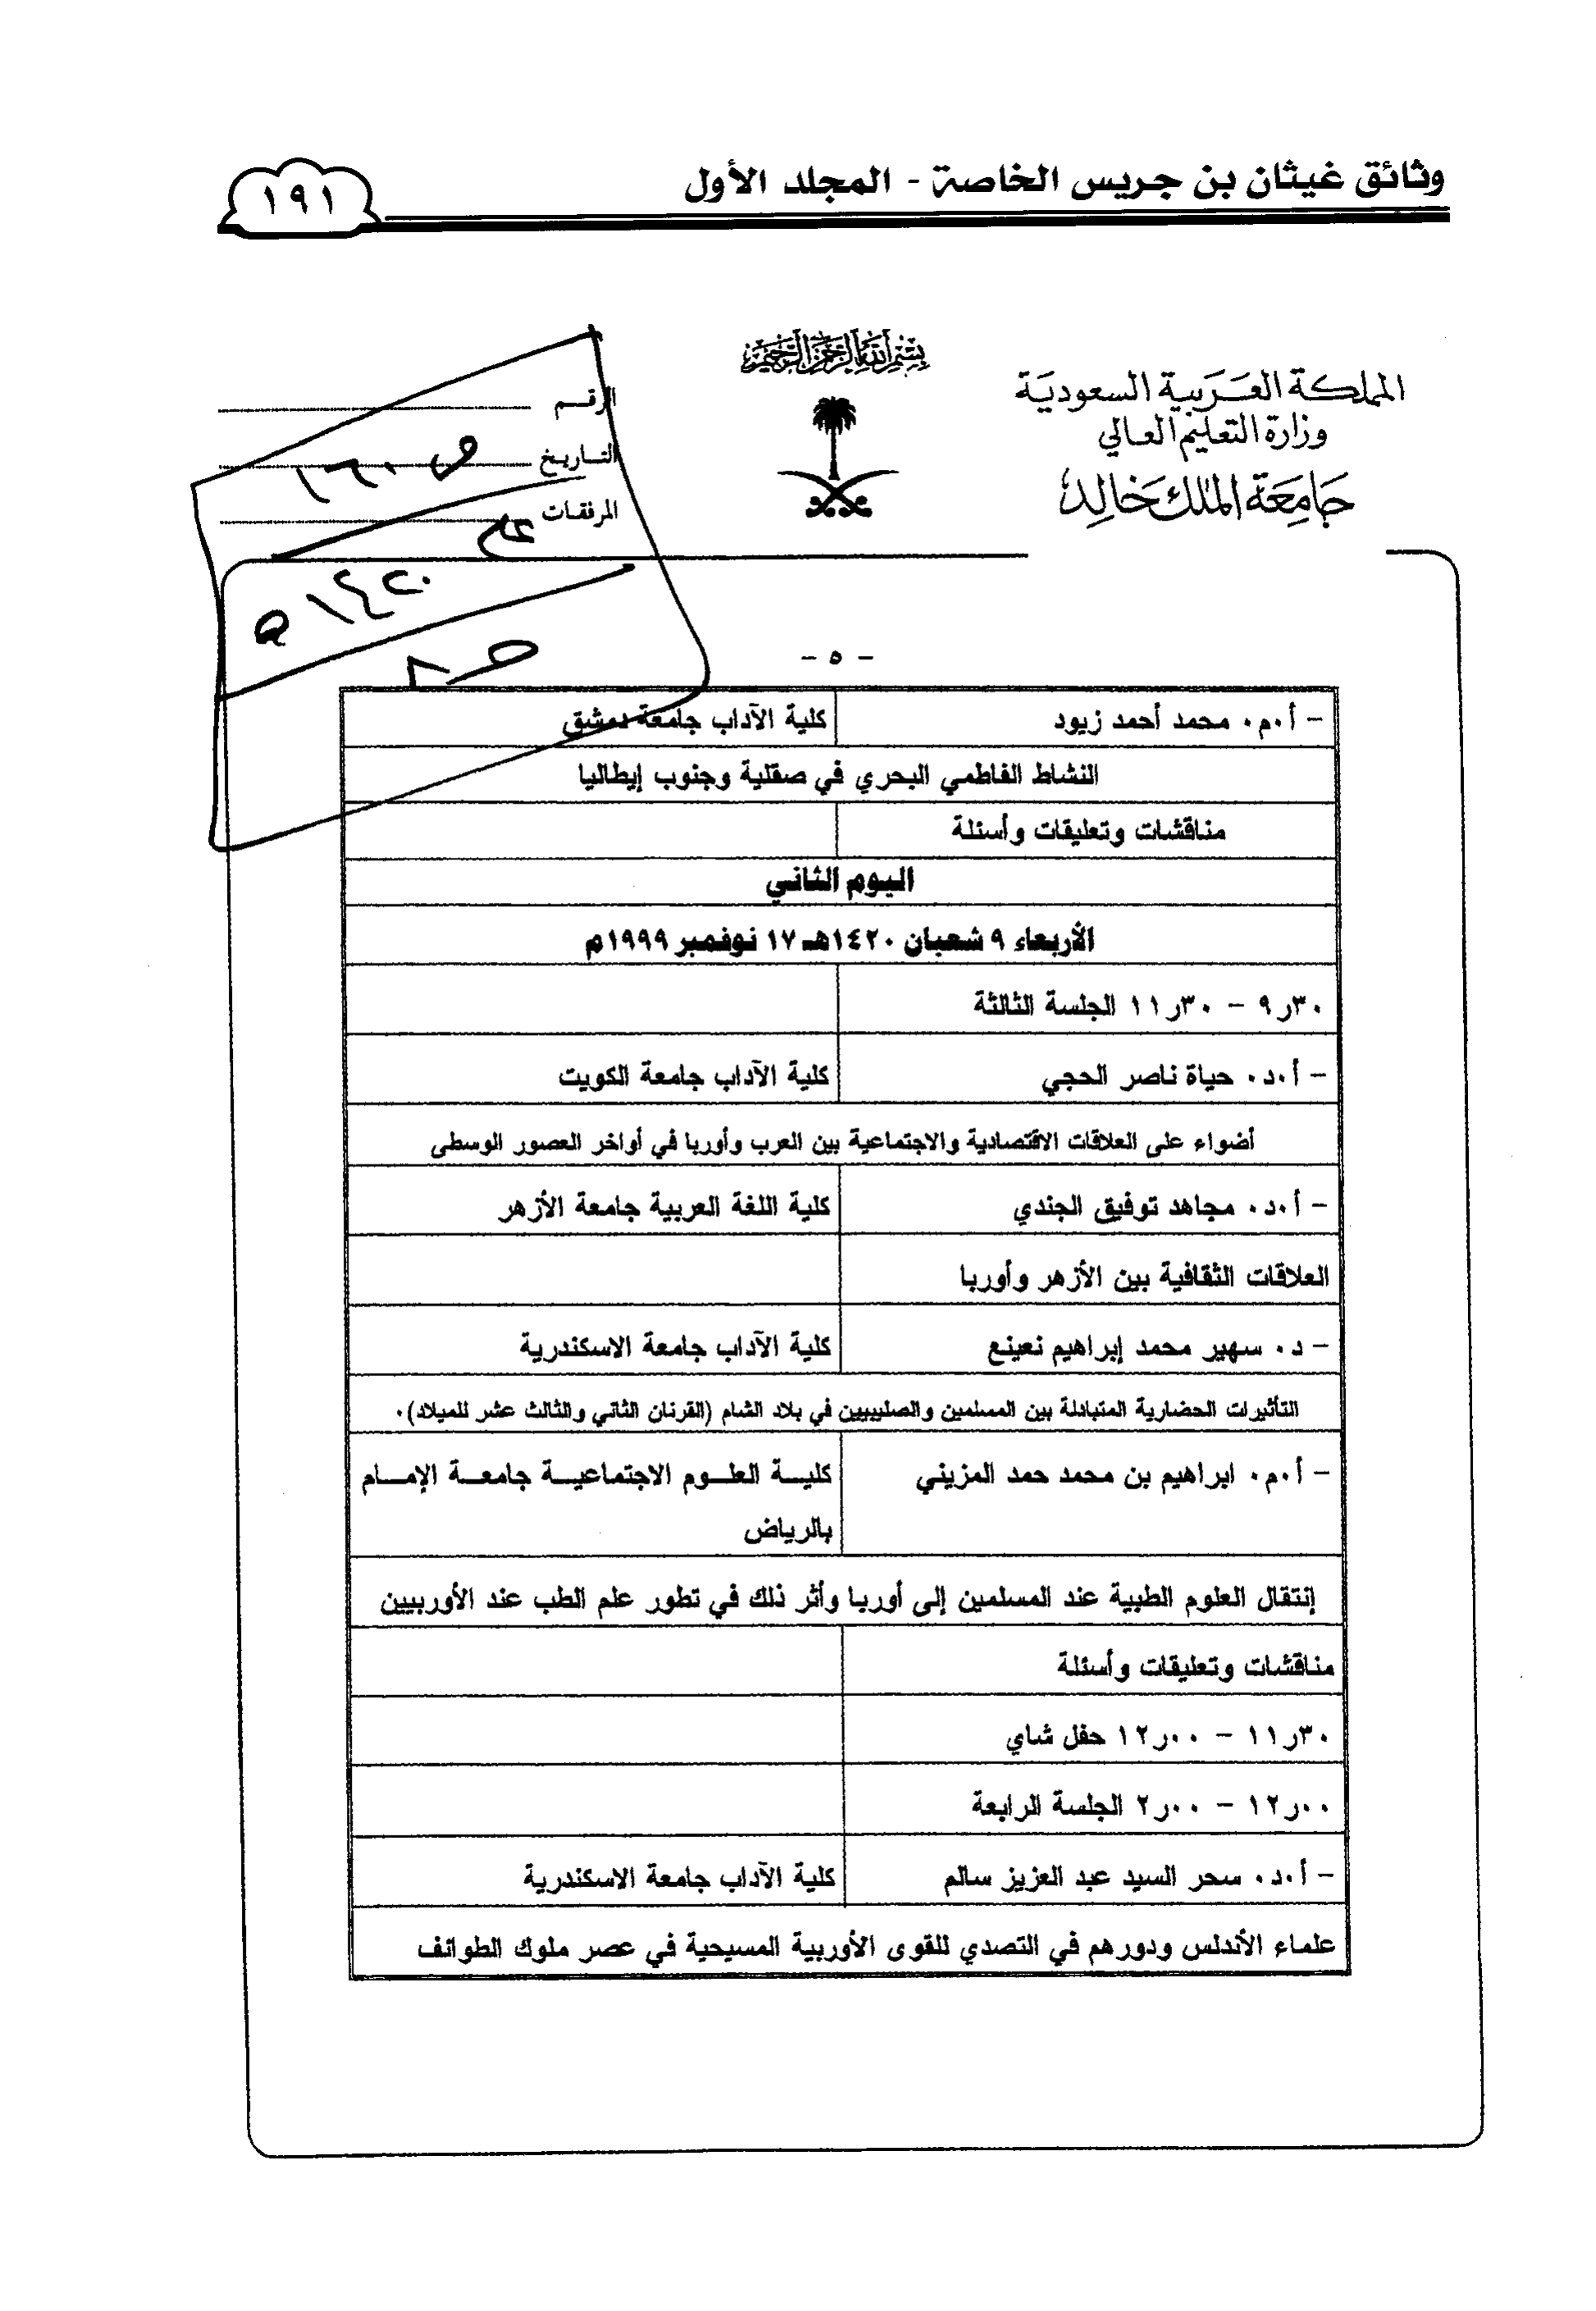 وثائق غيثان بن جريس الخاصة - المجلد الأول
١٩١
بسم الله الرحمن الرحيم
المملكة العربية السعودية
وزارة التعليم العالي
جامعة الملك خالد
الرقم
التاريخ
المرفقات
ص ١٦٠
عام
١٤٢٠ هـ
- ٥ -
- أ٠م٠ محمد أحمد زيود كلية الآداب جامعة دمشق
النشاط الفاطمي البحري في صقلية وجنوب إيطاليا
مناقشات وتعليقات وأسئلة
اليوم الثاني
الأربعاء ٩ شعبان ١٤٢٠هـ ١٧ نوفمبر ١٩٩٩م
٩٫٣٠ - ١١٫٣٠ الجلسة الثالثة
- أ٠د٠ حياة ناصر الحجي كلية الآداب جامعة الكويت
أضواء على العلاقات الاقتصادية والاجتماعية بين العرب وأوربا في أواخر العصور الوسطى
- أ٠د٠ مجاهد توفيق الجندي كلية اللغة العربية جامعة الأزهر
العلاقات الثقافية بين الأزهر وأوربا
- د٠ سهير محمد إبراهيم نعينع كلية الآداب جامعة الاسكندرية
التأثيرات الحضارية المتبادلة بين المسلمين والصليبيين في بلاد الشام (القرنان الثاني والثالث عشر للميلاد)٠
- أ٠م٠ ابراهيم بن محمد حمد المزيني كلية العلوم الاجتماعية جامعة الإمام
بالرياض
إنتقال العلوم الطبية عند المسلمين إلى أوربا وأثر ذلك في تطور علم الطب عند الأوربيين
مناقشات وتعليقات وأسئلة
١١٫٣٠ - ١٢٫٠٠ حفل شاي
١٢٫٠٠ - ٢٫٠٠ الجلسة الرابعة
- أ٠د٠ سحر السيد عبد العزيز سالم كلية الآداب جامعة الاسكندرية
علماء الأندلس ودورهم في التصدي للقوى الأوربية المسيحية في عصر ملوك الطوائف